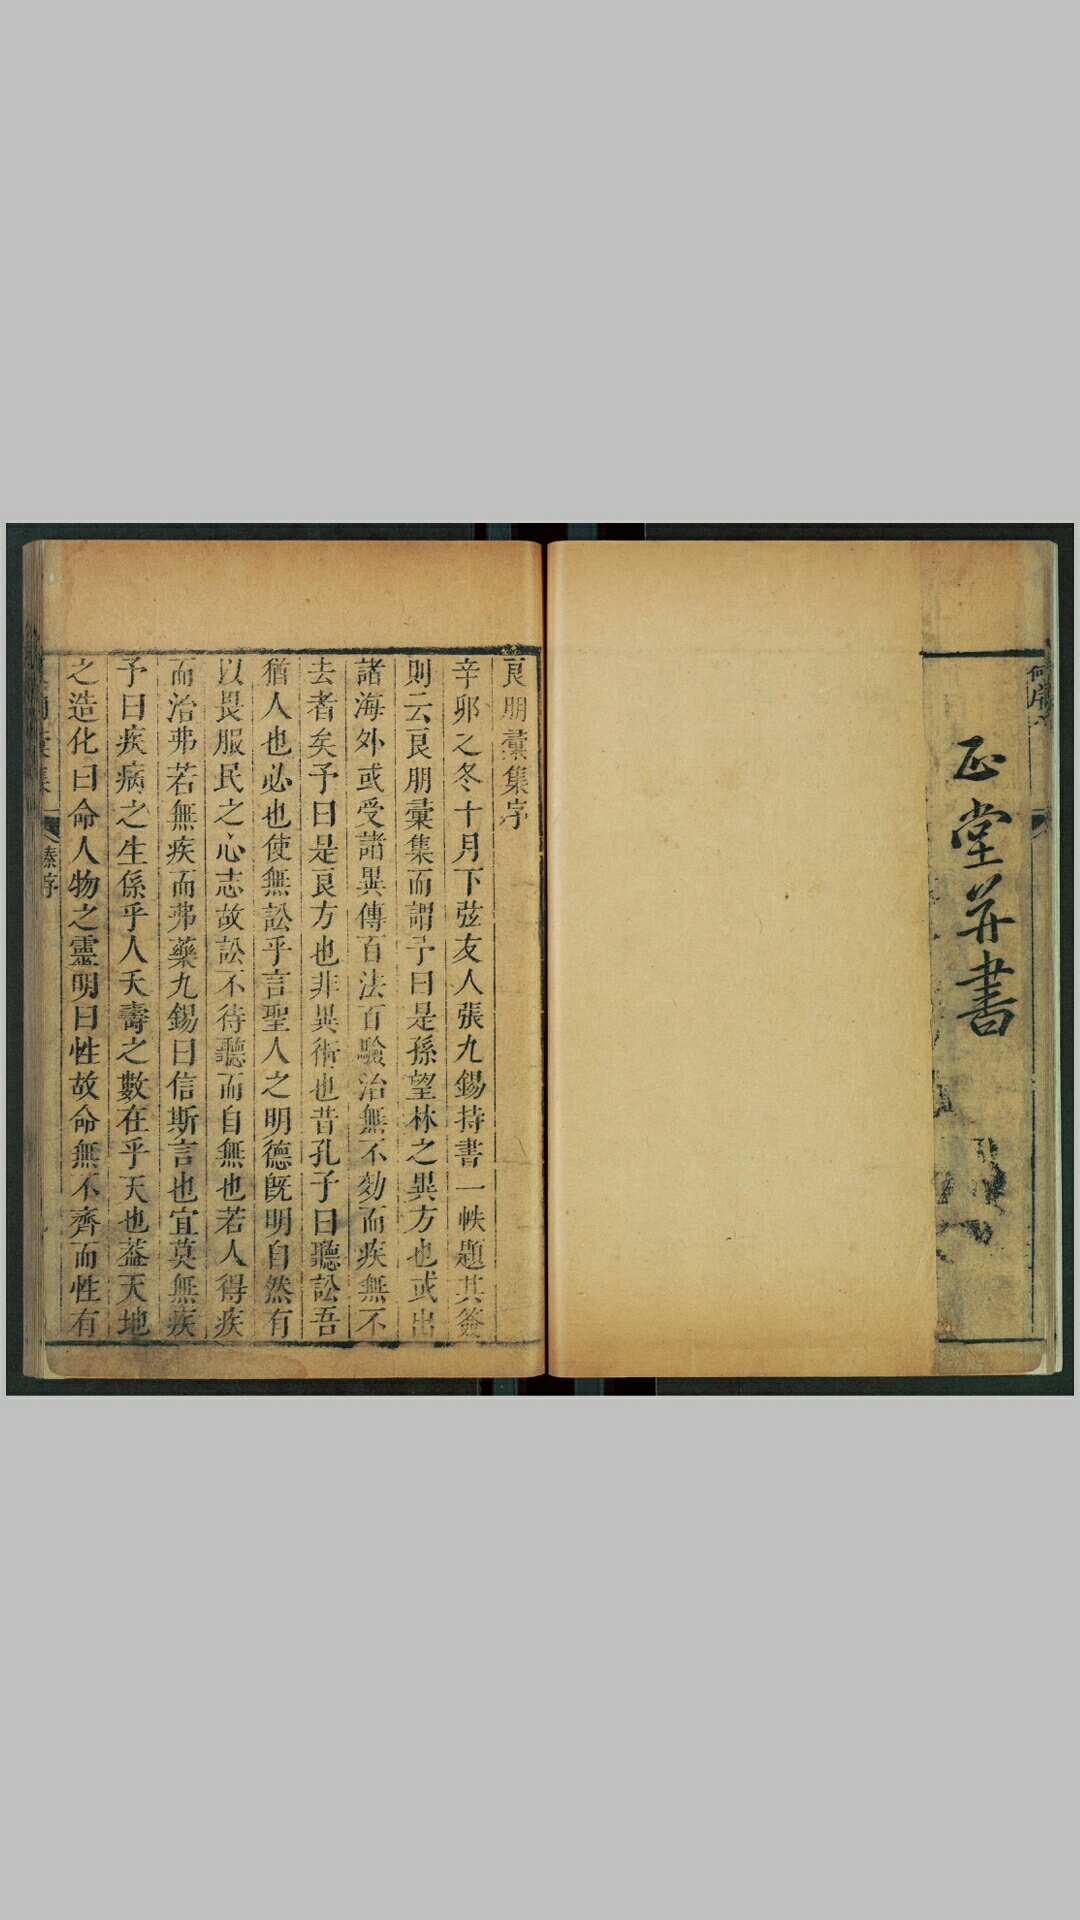 正堂并書
良朋彙集序
辛卯之冬十月下弦友人張九錫持書一帙題其簽
則云良朋彙集而謂予曰是孫望林之異方也或出
諸海外或受諸異傳百法百驗治無不効而疾無不
去者矣予曰是良方也非異術也昔孔子曰聽訟吾
猶人也必也使無訟乎言聖人之明德旣明自然有
以畏服民之心志故訟不待聽而自無也若人得疾
而治弗若無疾而弗藥九錫曰信斯言也宜莫無疾
予曰疾病之生係乎人夭壽之數在乎天也葢天地
之造化曰命人物之靈明曰性故命無不齊而性有